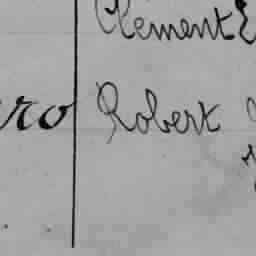 Clement
ro Robert